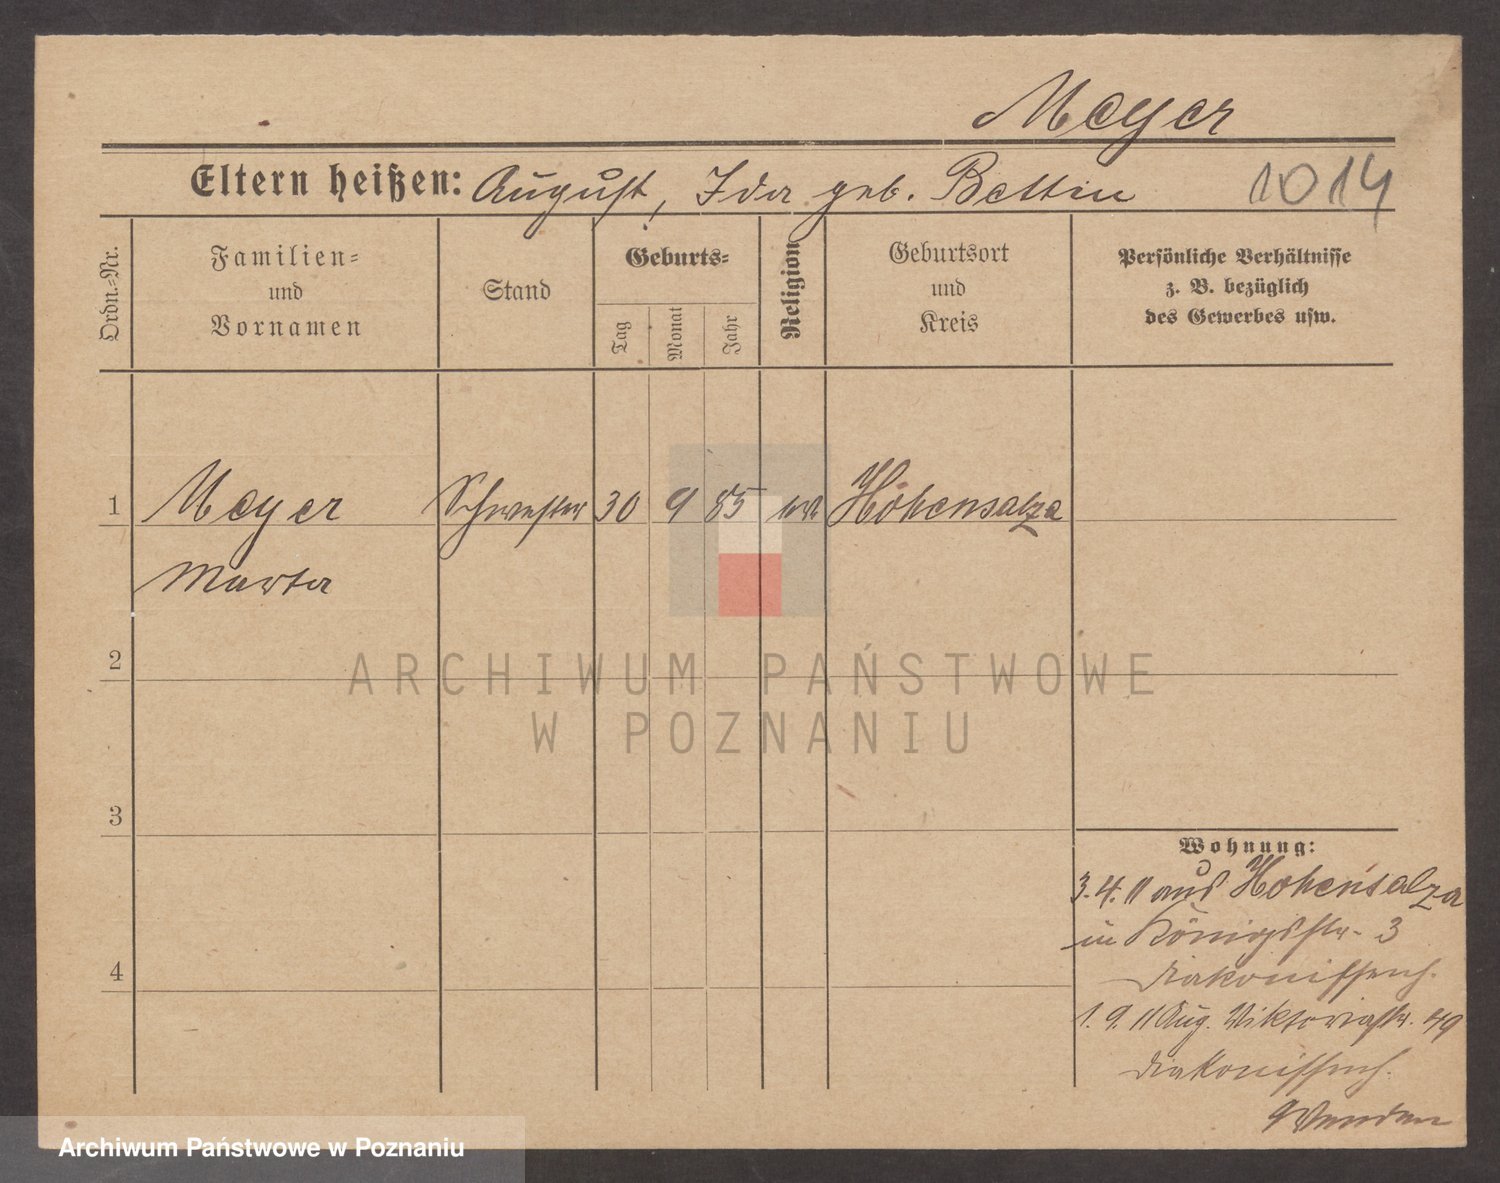 Meyer
Eltern heißen: August, Ida geb. Bettin
1014
Ordn.-Nr.
Familien-
und
Vornamen
Stand
Geburts-
Tag
Monat
Jahr
Religion
Geburtsort
und
Kreis
Persönliche Verhältnisse
z. B. bezüglich
des Gewerbes usw.
1 Meyer Schwester 30 9 85 Hohensalza
Marta
2
3
4
ARCHIWUM PAŃSTWOWE
W POZNANIU
Wohnung:
3.4.11 aus Hohensalza
in Königsstr. 3
Diakonissenh.
1.9.11 Aug. Viktoriastr. 49
Diakonissenh.
Wenden
Archiwum Państwowe w Poznaniu